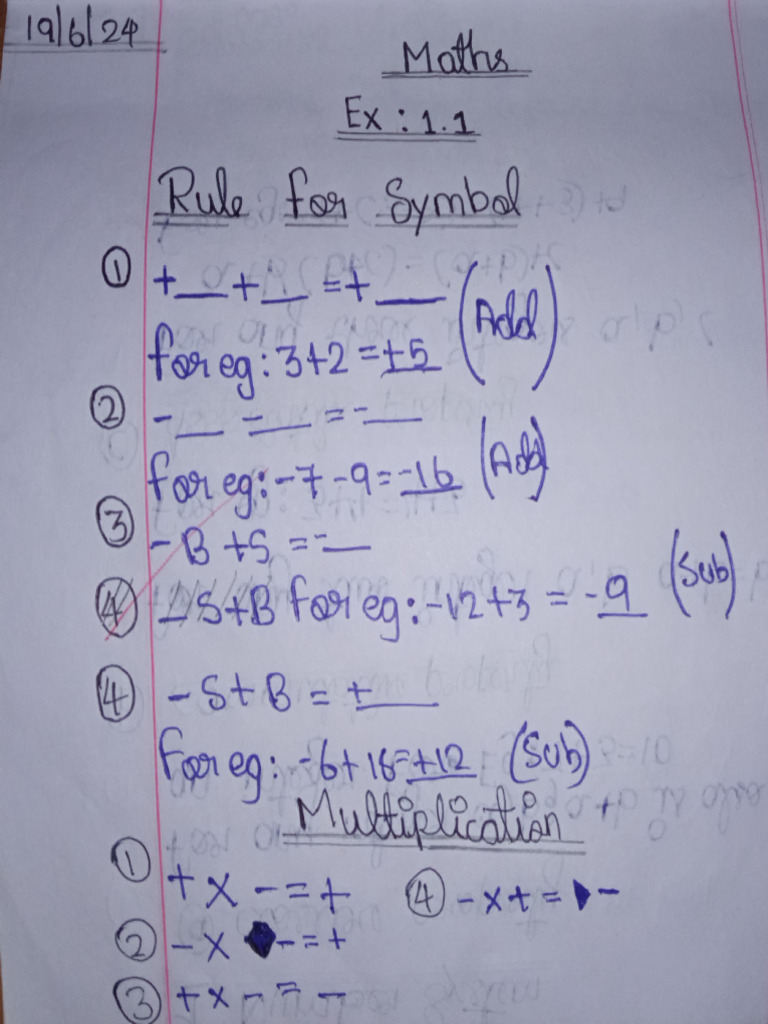 19/6/24
Maths
Ex : 1.1
Rule for Symbol
① +__ + __ = +___ (Add)
for eg: 3+2 = +5
② -__ -__ = -__
for eg: -7 -9 = -16 (Add)
③ - B + S = -__
④ - S + B for eg: -12 + 3 = -9 (Sub)
④ - S + B = +___
For eg: -6 + 18 = +12 (Sub)
Multiplication
① + x - = + ④ - x + = -
② - x - = +
③ + x - = -